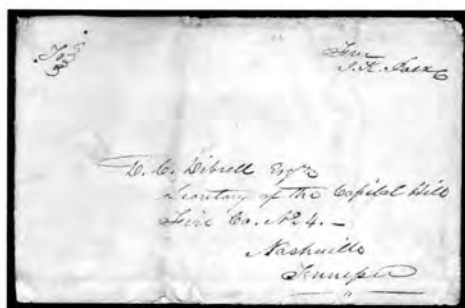 Free
J. K. Polk
D. C. Dibrell Esqr.
Secretary of the Capitol Hill
Fire Co. No 4. —
Nashville
Tennessee